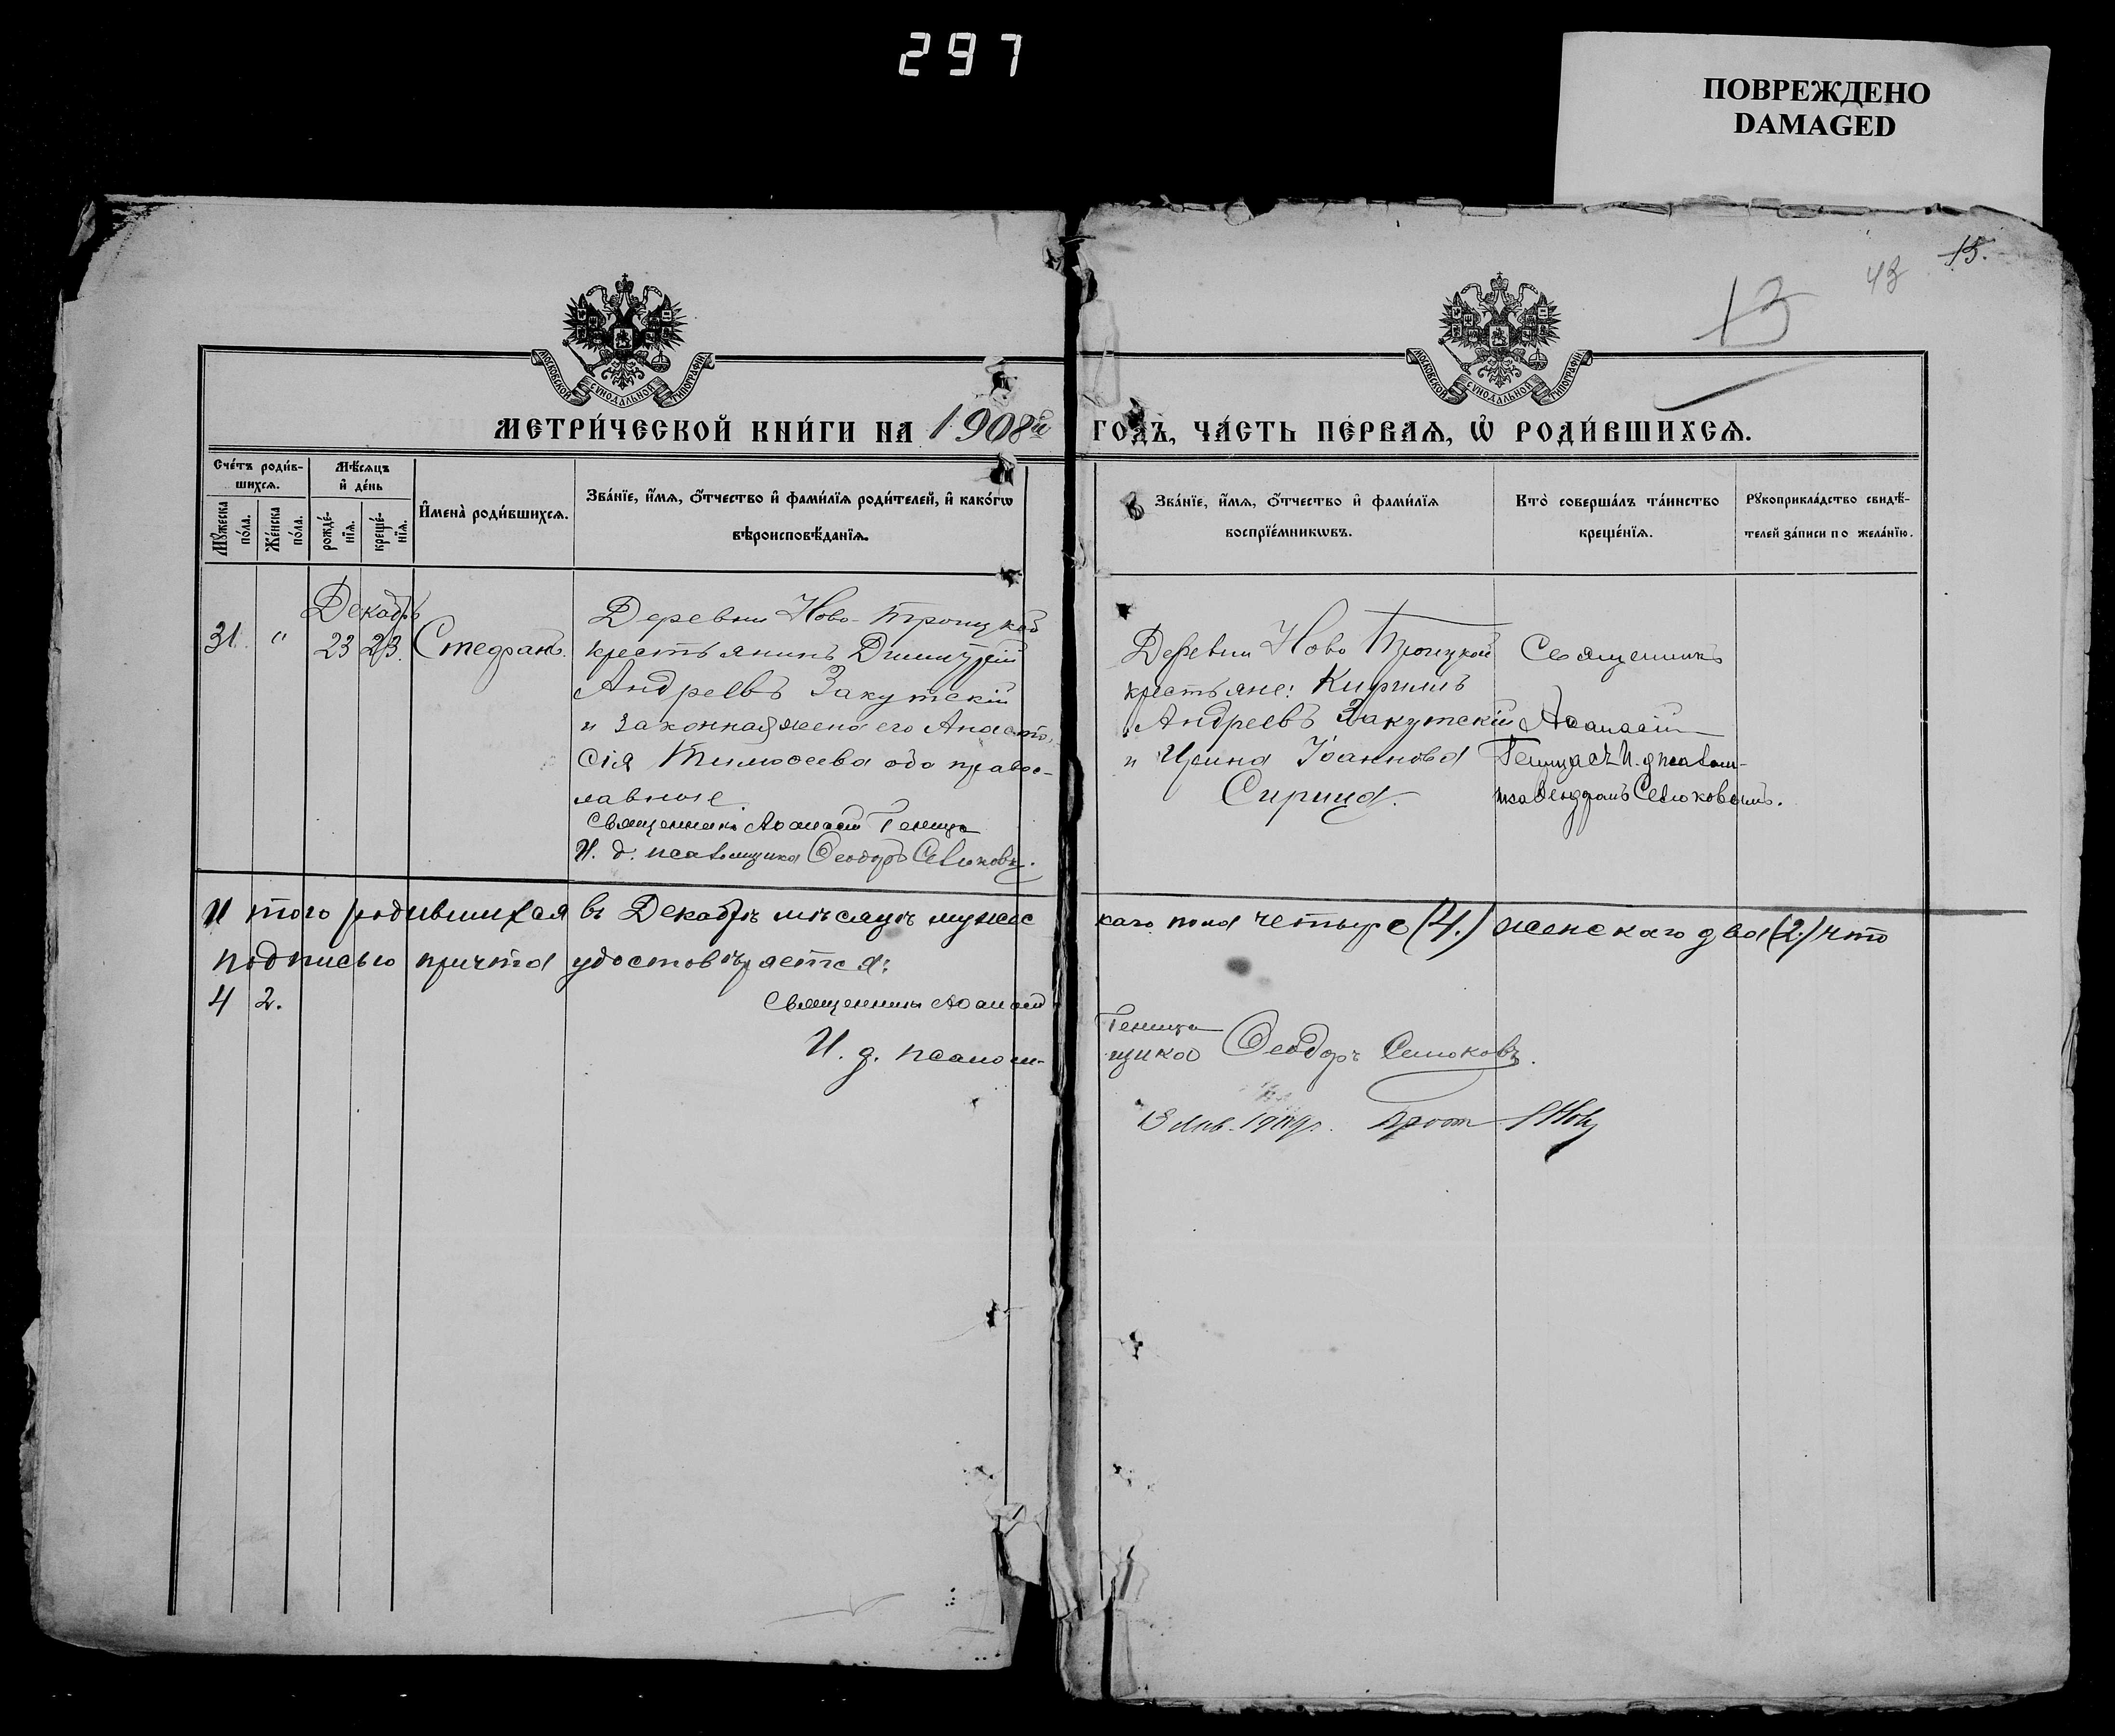 297
ПОВРЕЖДЕНО
DAMAGED
15.
43
13
МОСКОВСКОЙ СѴНОДАЛЬНОЙ ТИПОГРАФІИ
МОСКОВСКОЙ СѴНОДАЛЬНОЙ ТИПОГРАФІИ
МЕТРИ́ЧЕСКОЙ КНИ́ГИ НА 1908й ГОДЪ, ЧА́СТЬ ПЕ́РВАѦ, Ѽ РОДИ́ВШИХСѦ.
Сче́тъ роди́в-
шихсѧ.
Мꙋ́жеска
по́ла.
Же́нска
по́ла.
Мѣ́сѧцъ
и҆ де́нь
рожде́-
нїѧ.
креще́-
нїѧ.
И҆мена̀ роди́вшихсѧ.
Зва́нїе, и҆́мѧ, ѻ҆́тчество и҆ фами́лїѧ роди́телей, и҆ како́гѡ
вѣроисповѣ́данїѧ.
Зва́нїе, и҆́мѧ, ѻ҆́тчество и҆ фами́лїѧ
воспрїе́мникѡвъ.
Кто̀ соверша́лъ та́инство
креще́нїѧ.
Рꙋкоприкла́дство свидѣ́-
телей за́писи по жела́нїю.
Декабрь
31. " 23 23. Стефанъ.
Деревни Ново-Троицкой
крестьянинъ Димитрій
Андреевъ Закутскій
и законная жена его Анаста-
сія Тимоѳеева оба правос-
лавные.
Священникъ Аѳанасій Геница
И. д. псаломщика Ѳеодоръ Севюковъ.
Деревни Ново Троицкой
крестьяне: Кириллъ
Андреевъ Закутскій
и Ирина Іоаннова
Сирица.
Священникъ
Аѳанасій
Геница съ И. д псалом-
щика Ѳеодоромъ Севюковымъ.
И того родившихся въ Декабрѣ мѣсяцѣ мужес каго пола четыре (4.) женскаго два (2.) что
подписью причта удостовѣряется:
4 2.
Священникъ Аѳанасій Геница
И. д. псалом- щика Ѳеодоръ Севюковъ.
13 Янв. 1909г. Прот